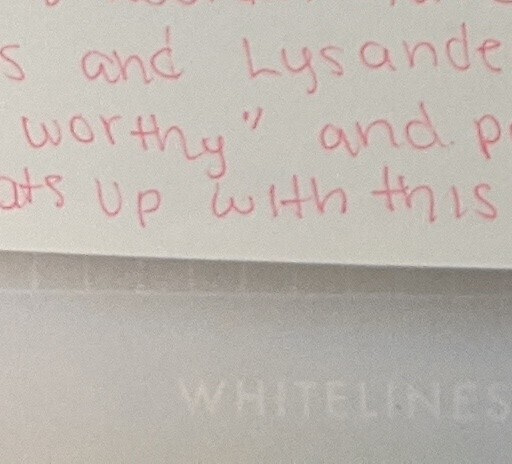 s and Lysande
worthy" and p
ats up with this
WHITELINES